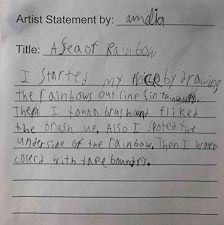 Artist Statement by: amelia
Title: A Sea of Rainbow
I started my piece by drawing
the rainbows out line in
Then I a brush and fliked
the brush up. Also I
underside of the rainbow. Then I
colerd with tape boundry.